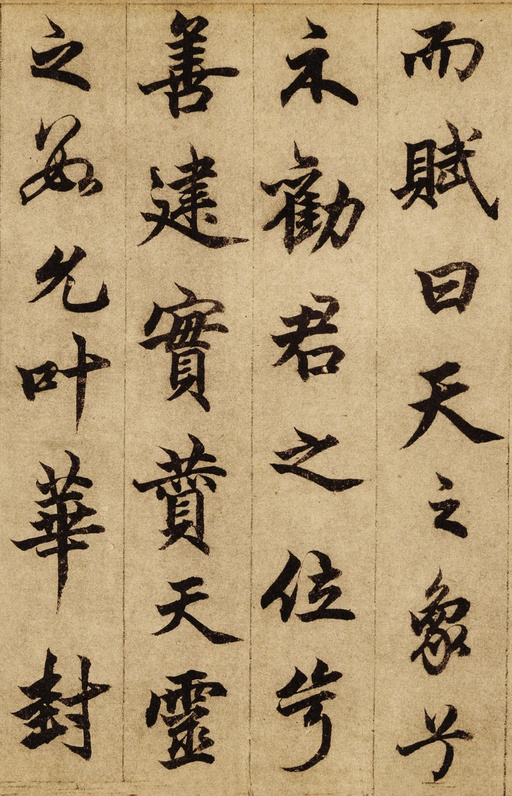 而賦曰天之象兮
示勸君之位兮
善建實蕡天靈
之數允叶華封